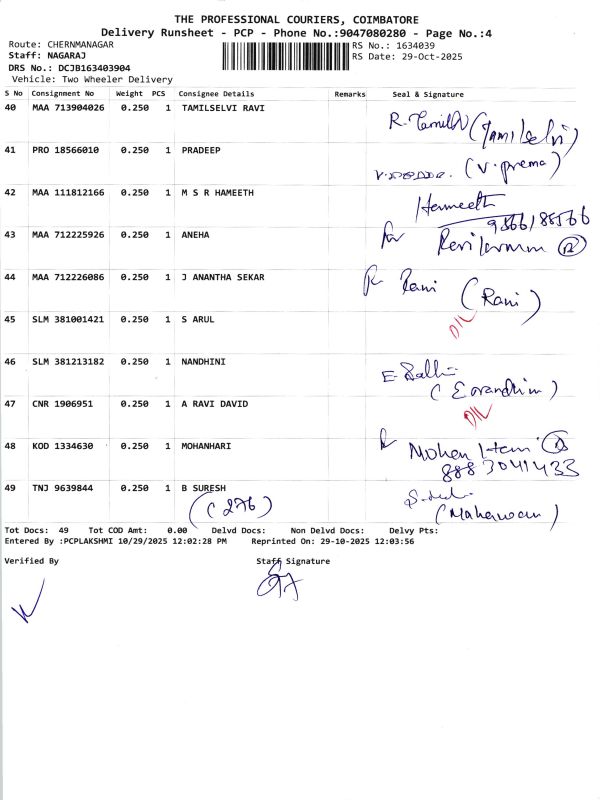 THE PROFESSIONAL COURIERS, COIMBATORE
Delivery Runsheet - PCP - Phone No.:9047080280 - Page No.:4
Route: CHERNMANAGAR RS No.: 1634039
Staff: NAGARAJ RS Date: 29-Oct-2025
DRS No.: DCJB163403904
Vehicle: Two Wheeler Delivery
S No Consignment No Weight PCS Consignee Details Remarks Seal & Signature
40 MAA 713904026 0.250 1 TAMILSELVI RAVI
R. Tamil (Tamilselvi)
41 PRO 18566010 0.250 1 PRADEEP
(V. prema)
42 MAA 111812166 0.250 1 M S R HAMEETH
Hameeth
43 MAA 712225926 0.250 1 ANEHA
44 MAA 712226086 0.250 1 J ANANTHA SEKAR
Rani (Rani)
45 SLM 381001421 0.250 1 S ARUL
D/L
46 SLM 381213182 0.250 1 NANDHINI
47 CNR 1906951 0.250 1 A RAVI DAVID
D/L
48 KOD 1334630 0.250 1 MOHANHARI
Mohan Hari
8883041433
49 TNJ 9639844 0.250 1 B SURESH
(276)
Tot Docs: 49 Tot COD Amt: 0.00 Delvd Docs: Non Delvd Docs: Delvy Pts:
Entered By :PCPLAKSHMI 10/29/2025 12:02:28 PM Reprinted On: 29-10-2025 12:03:56
Verified By Staff Signature